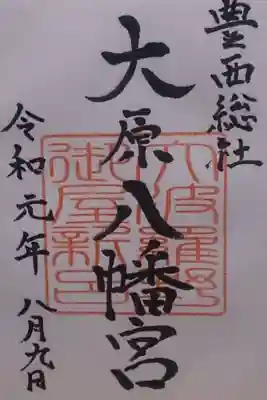 豊西総社
大原八幡宮
令和元年 八月九日